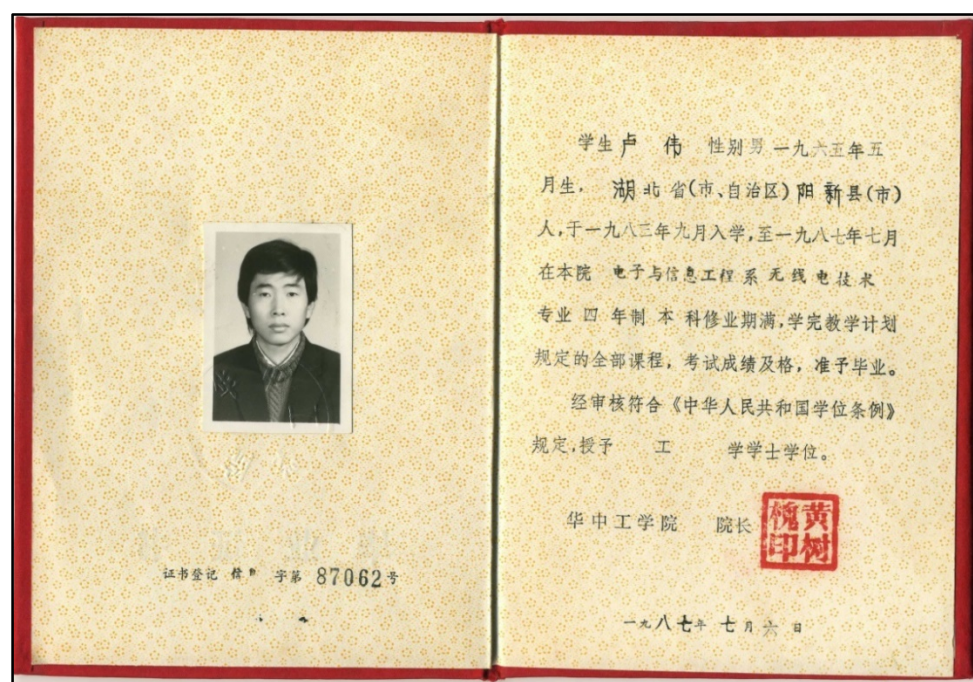 证书登记 信 字第 87062号
学生卢 伟 性别男 一九六五年五
月生, 湖北省(市、自治区)阳新县(市)
人,于一九八三年九月入学,至一九八七年七月
在本院 电子与信息工程系 无线电技术
专业 四 年制 本 科修业期满,学完教学计划
规定的全部课程, 考试成绩及格, 准予毕业。
经审核符合《中华人民共和国学位条例》
规定,授予 工 学学士学位。
华中工学院 院长
黄树槐印
一九八七年 七月 六 日